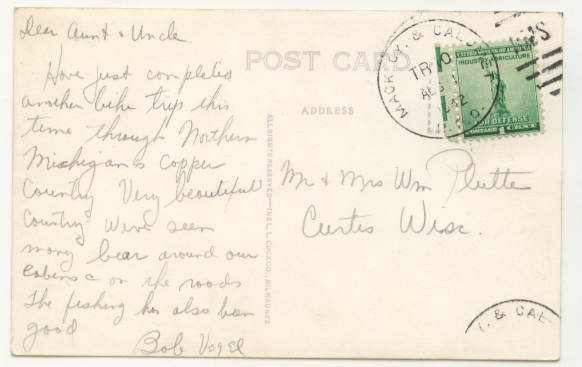 Dear Aunt & Uncle
Have just completed
another bike trip this
time through Northern
Michigan's Copper
Country Very beautiful
Country Weve seen
many bear around our
cabins & on the roads
The fishing has also been
good
Bob Vogel
POST CARD
ADDRESS
Mr & Mrs Wm Plutte
Curtis Wisc.
ALL RIGHTS RESERVED—THE L.L. COOK CO., MILWAUKEE
MACK. CY. & CAL.
TR 10
AUG
42
UNITED STATES OF AMERICA
INDUSTRY AGRICULTURE
FOR DEFENSE
POSTAGE 1 CENT
. & CAL